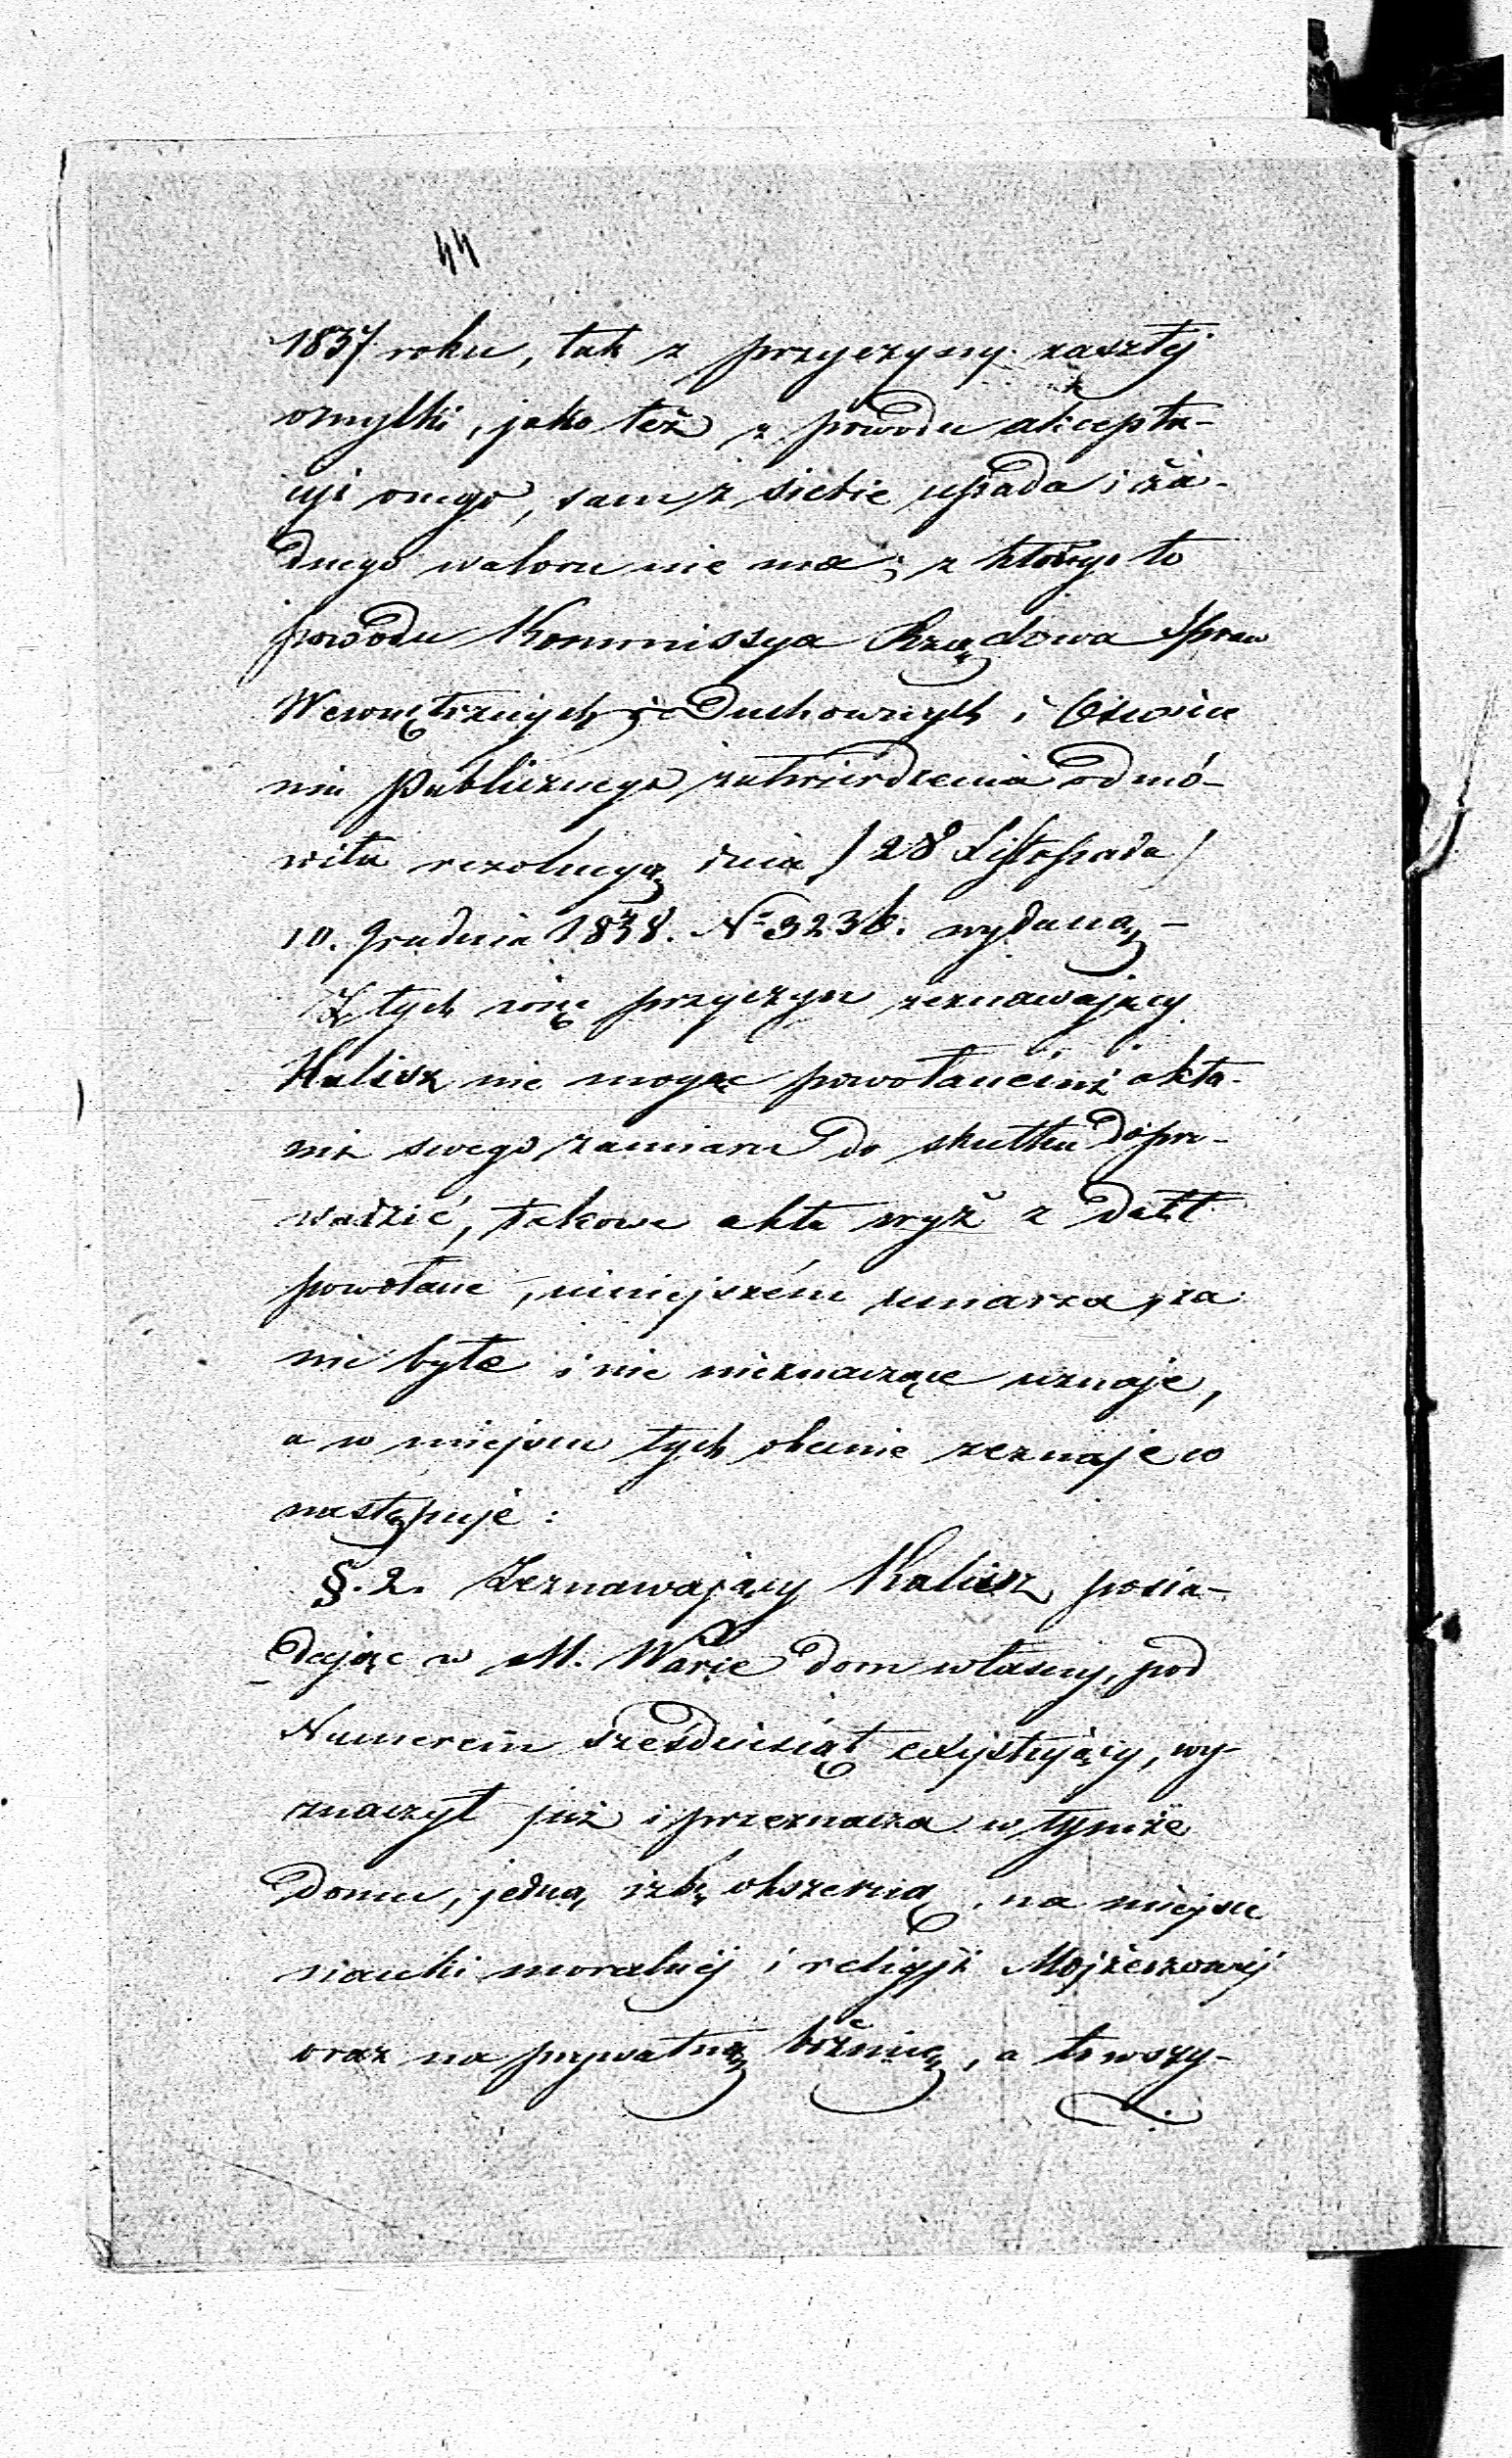 44
1837 roku, tak z przyczyny zaszłéj
omyłki, jako też z powodu akcepta-
cyi onego, sam z siebie upada i ża-
dnego waloru nie ma; z którego to
powodu Kommissya Rządowa Spraw
Wewnętrznych Duchownych i Oświece
nia Publicznego zatwierdzenia odmó-
wiła rezolucyą dnia / 28 Listopada /
10. Grudnia 1838. No 3236. wydaną –
Z tych więc przyczyn zeznawający
Kalisz nie mogąc powołanemi akta-
mi swego zamiaru do skutku dopro-
wadzić, takowe akta wyż z datt
powołane, niniejszém umarza, za
nie byłe i nic nieznaczące uznaje,
a w miejscu tych obecnie zeznaje co
następuje:
§. 2. Zeznawający Kalisz posia-
dając w M. Warce dom własny, pod
Numerem sześdziesiąt exystujący, wy-
znaczył już i przeznacza w tymże
Domu, jedną izbę obszerną, na miejsce
nauki moralnéj i religji Mojżeszowéj
oraz na prywatną bóżnicę, a to wszy-